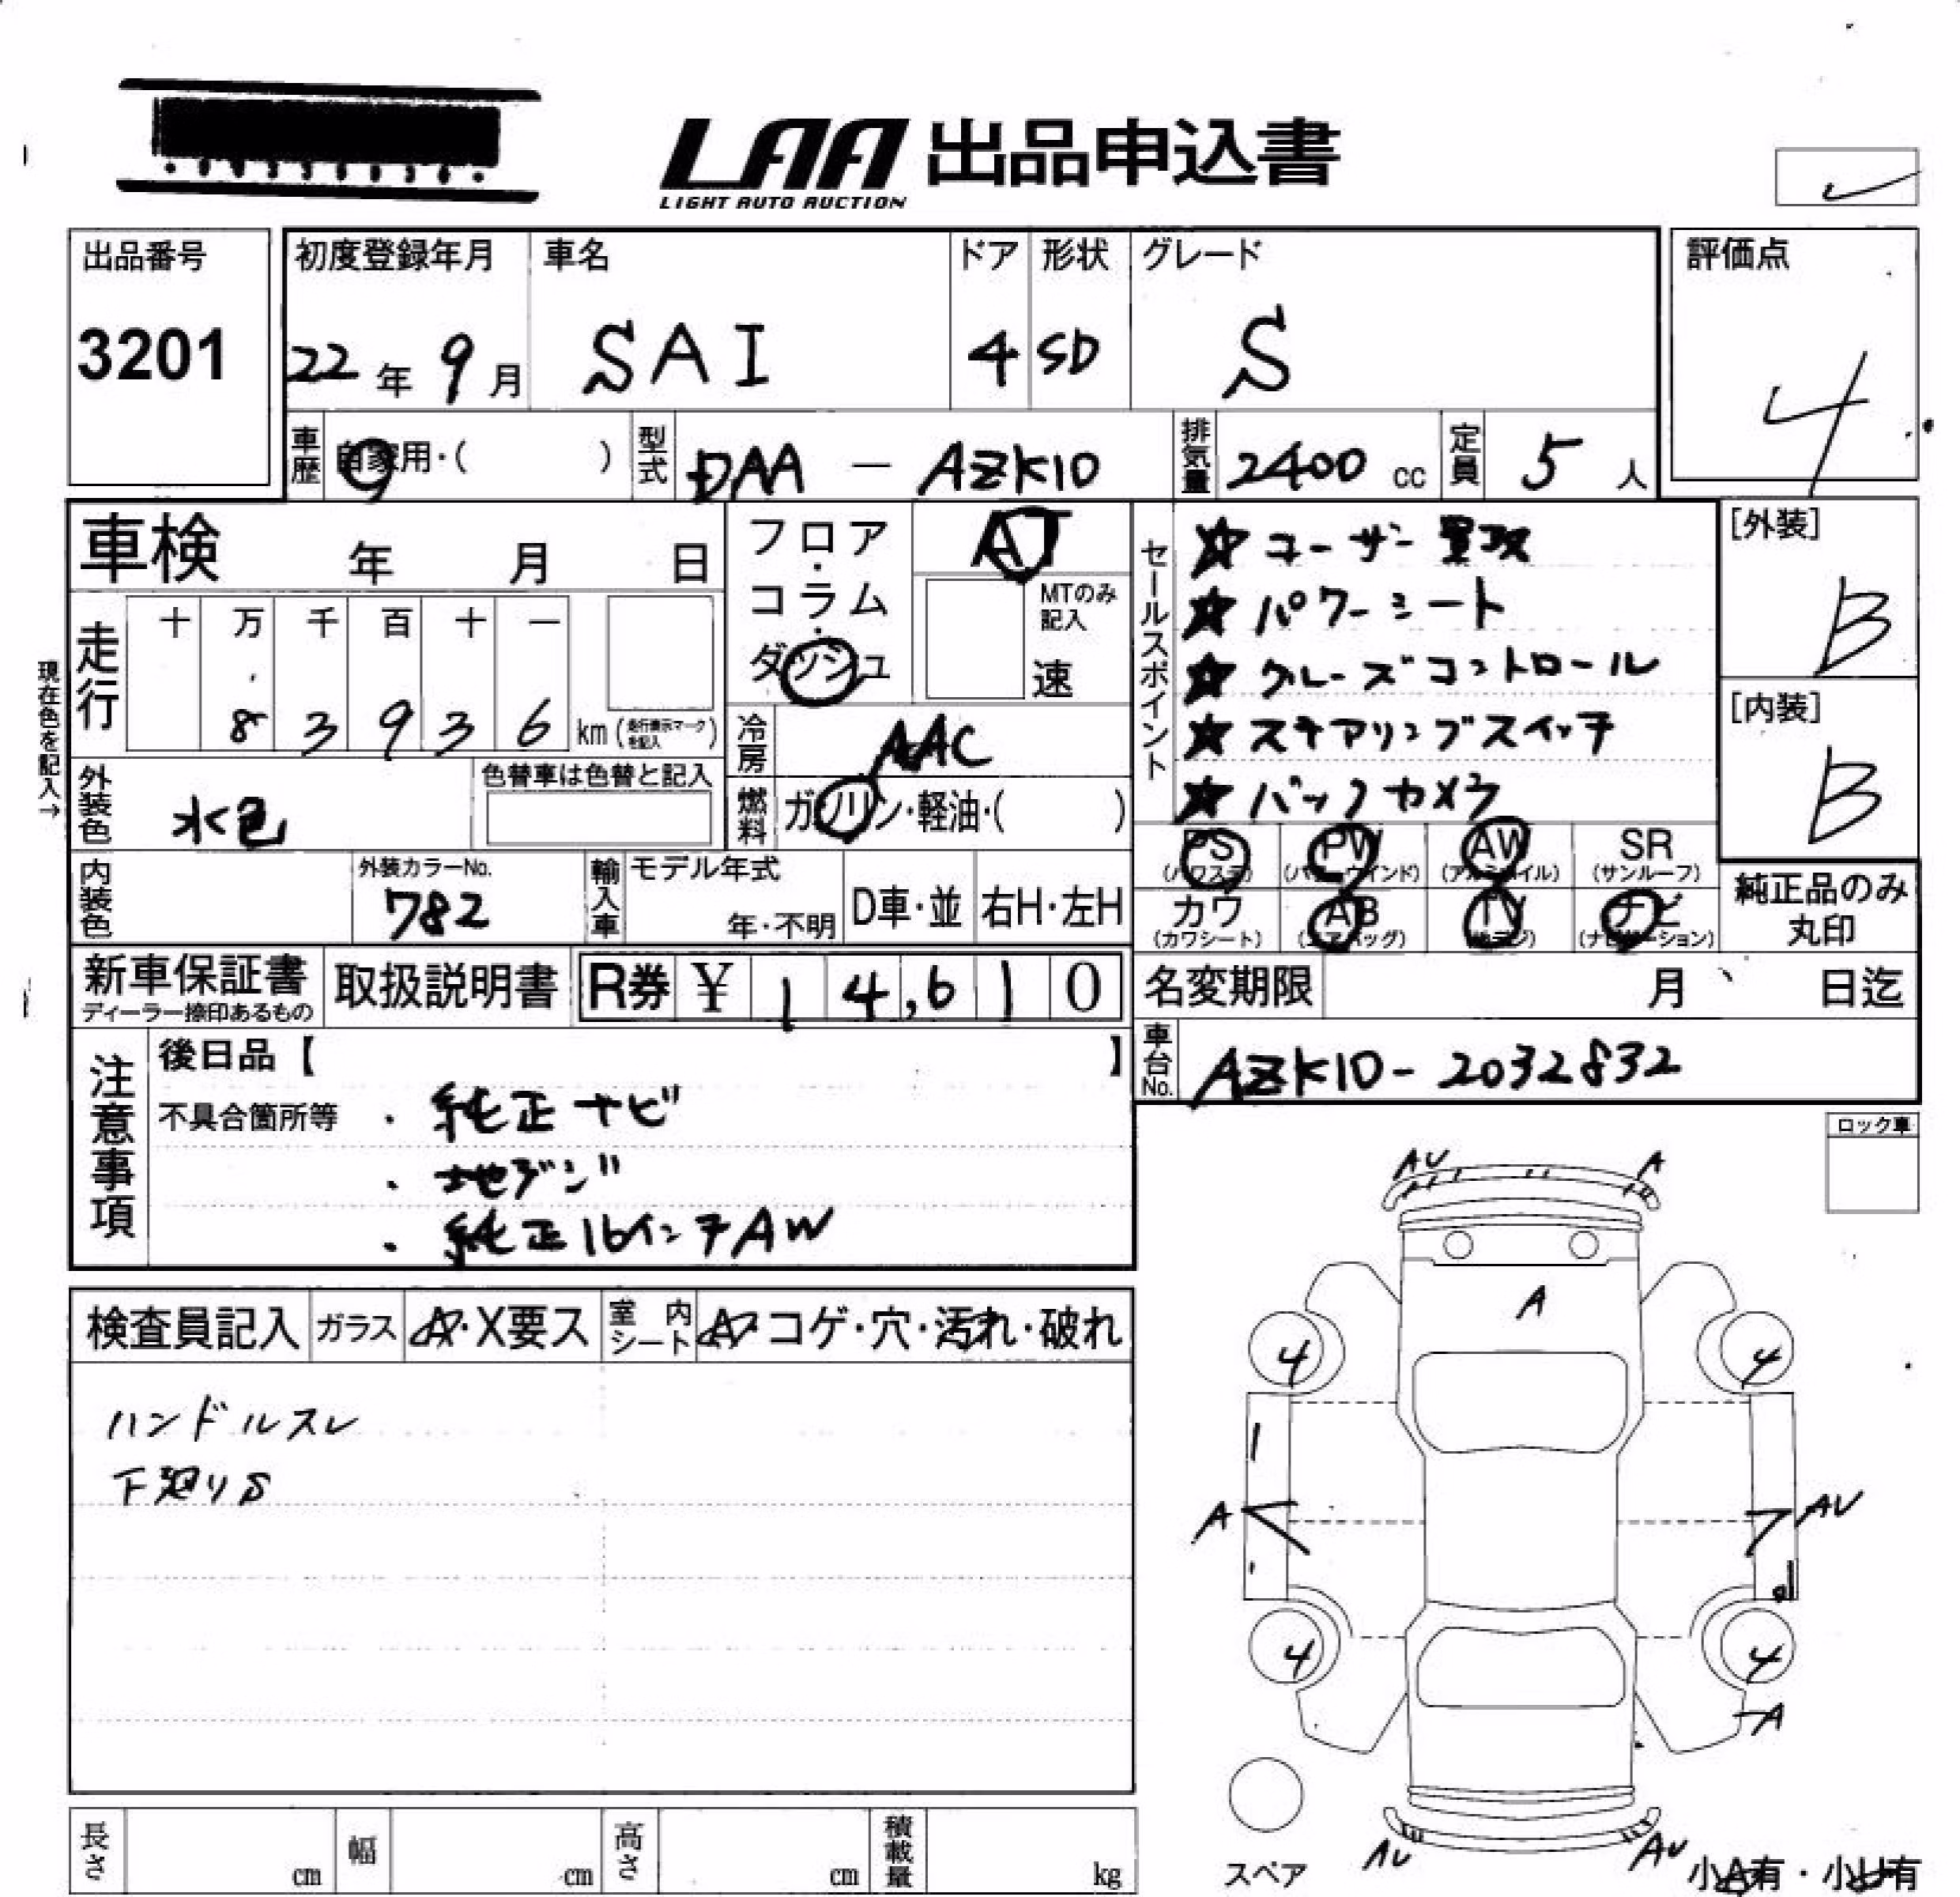 LAA 出品申込書
LIGHT AUTO AUCTION
出品番号
3201
初度登録年月
22年9月
車名
SAI
ドア
4
形状
SD
グレード
S
評価点
4
車歴
自家用・( )
型式
DAA - AZK10
排気量
2400 cc
定員
5 人
車検 年 月 日
フロア・コラム・ダッシュ
AT
MTのみ記入
速
セールスポイント
☆ユーザー買取
☆パワーシート
☆クルーズコントロール
☆ステアリングスイッチ
☆バックカメラ
[外装]
B
[内装]
B
現在色を記入→
走行
十 万 千 百 十 一
8 3 9 3 6 km(走行表示マークを記入)
冷房
AAC
外装色
水色
色替車は色替と記入
燃料
ガソリン・軽油・( )
PS (パワステ) PW (パワーウインド) AW (アルミホイル) SR (サンルーフ)
カワ (カワシート) AB (エアバッグ) TV (テレビ) ナビ (ナビゲーション)
純正品のみ丸印
内装色
外装カラーNo.
782
輸入車
モデル年式
年・不明
D車・並
右H・左H
新車保証書
ディーラー捺印あるもの
取扱説明書
R券 ¥ 14,610
名変期限 月 日迄
車台No.
AZK10-2032832
注意事項
後日品【 】
不具合箇所等 ・純正ナビ
・地デジ
・純正16インチAW
ロック車
検査員記入
ガラス
A・X要ス
室内シート
コゲ・穴・汚れ・破れ
ハンドルスレ
下廻りS
AU A
A
4 4
A AU
4 4
A
AU AU
スペア
小A有・小U有
長さ cm
幅 cm
高さ cm
積載量 kg